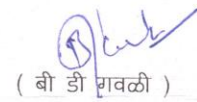 ( बी डी गवळी )